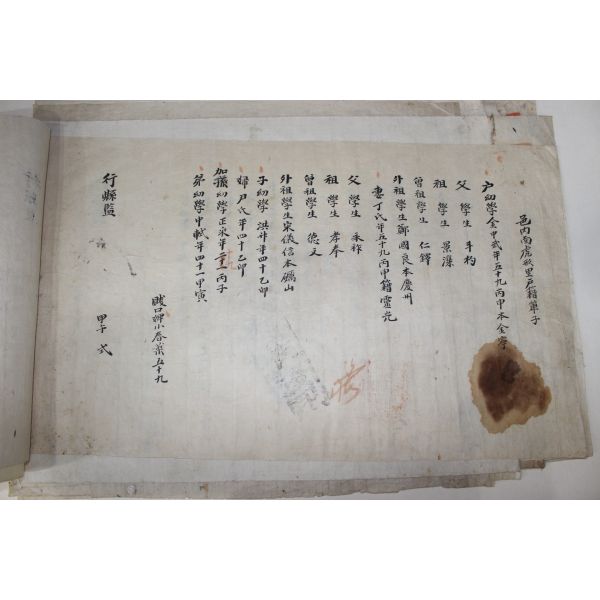 邑內南虎形里戶籍單子
戶幼學金甲貳年五十九丙甲本金寧
父 學生 斗杓
祖 學生 景濂
曾祖學生 仁鐸
外祖學生鄭國良本慶州
妻丁氏年五十九丙甲籍靈光
父 學生 永祚
祖 學生 孝奉
曾祖學生 德文
外祖學生宋儀信本礪山
子幼學 洪 年四十乙卯
婦尹氏年四十乙卯
加攝幼學正 年 丙子
弟幼學甲 年四十一甲寅
賤口婢小春 五十九
甲子 式
行縣監